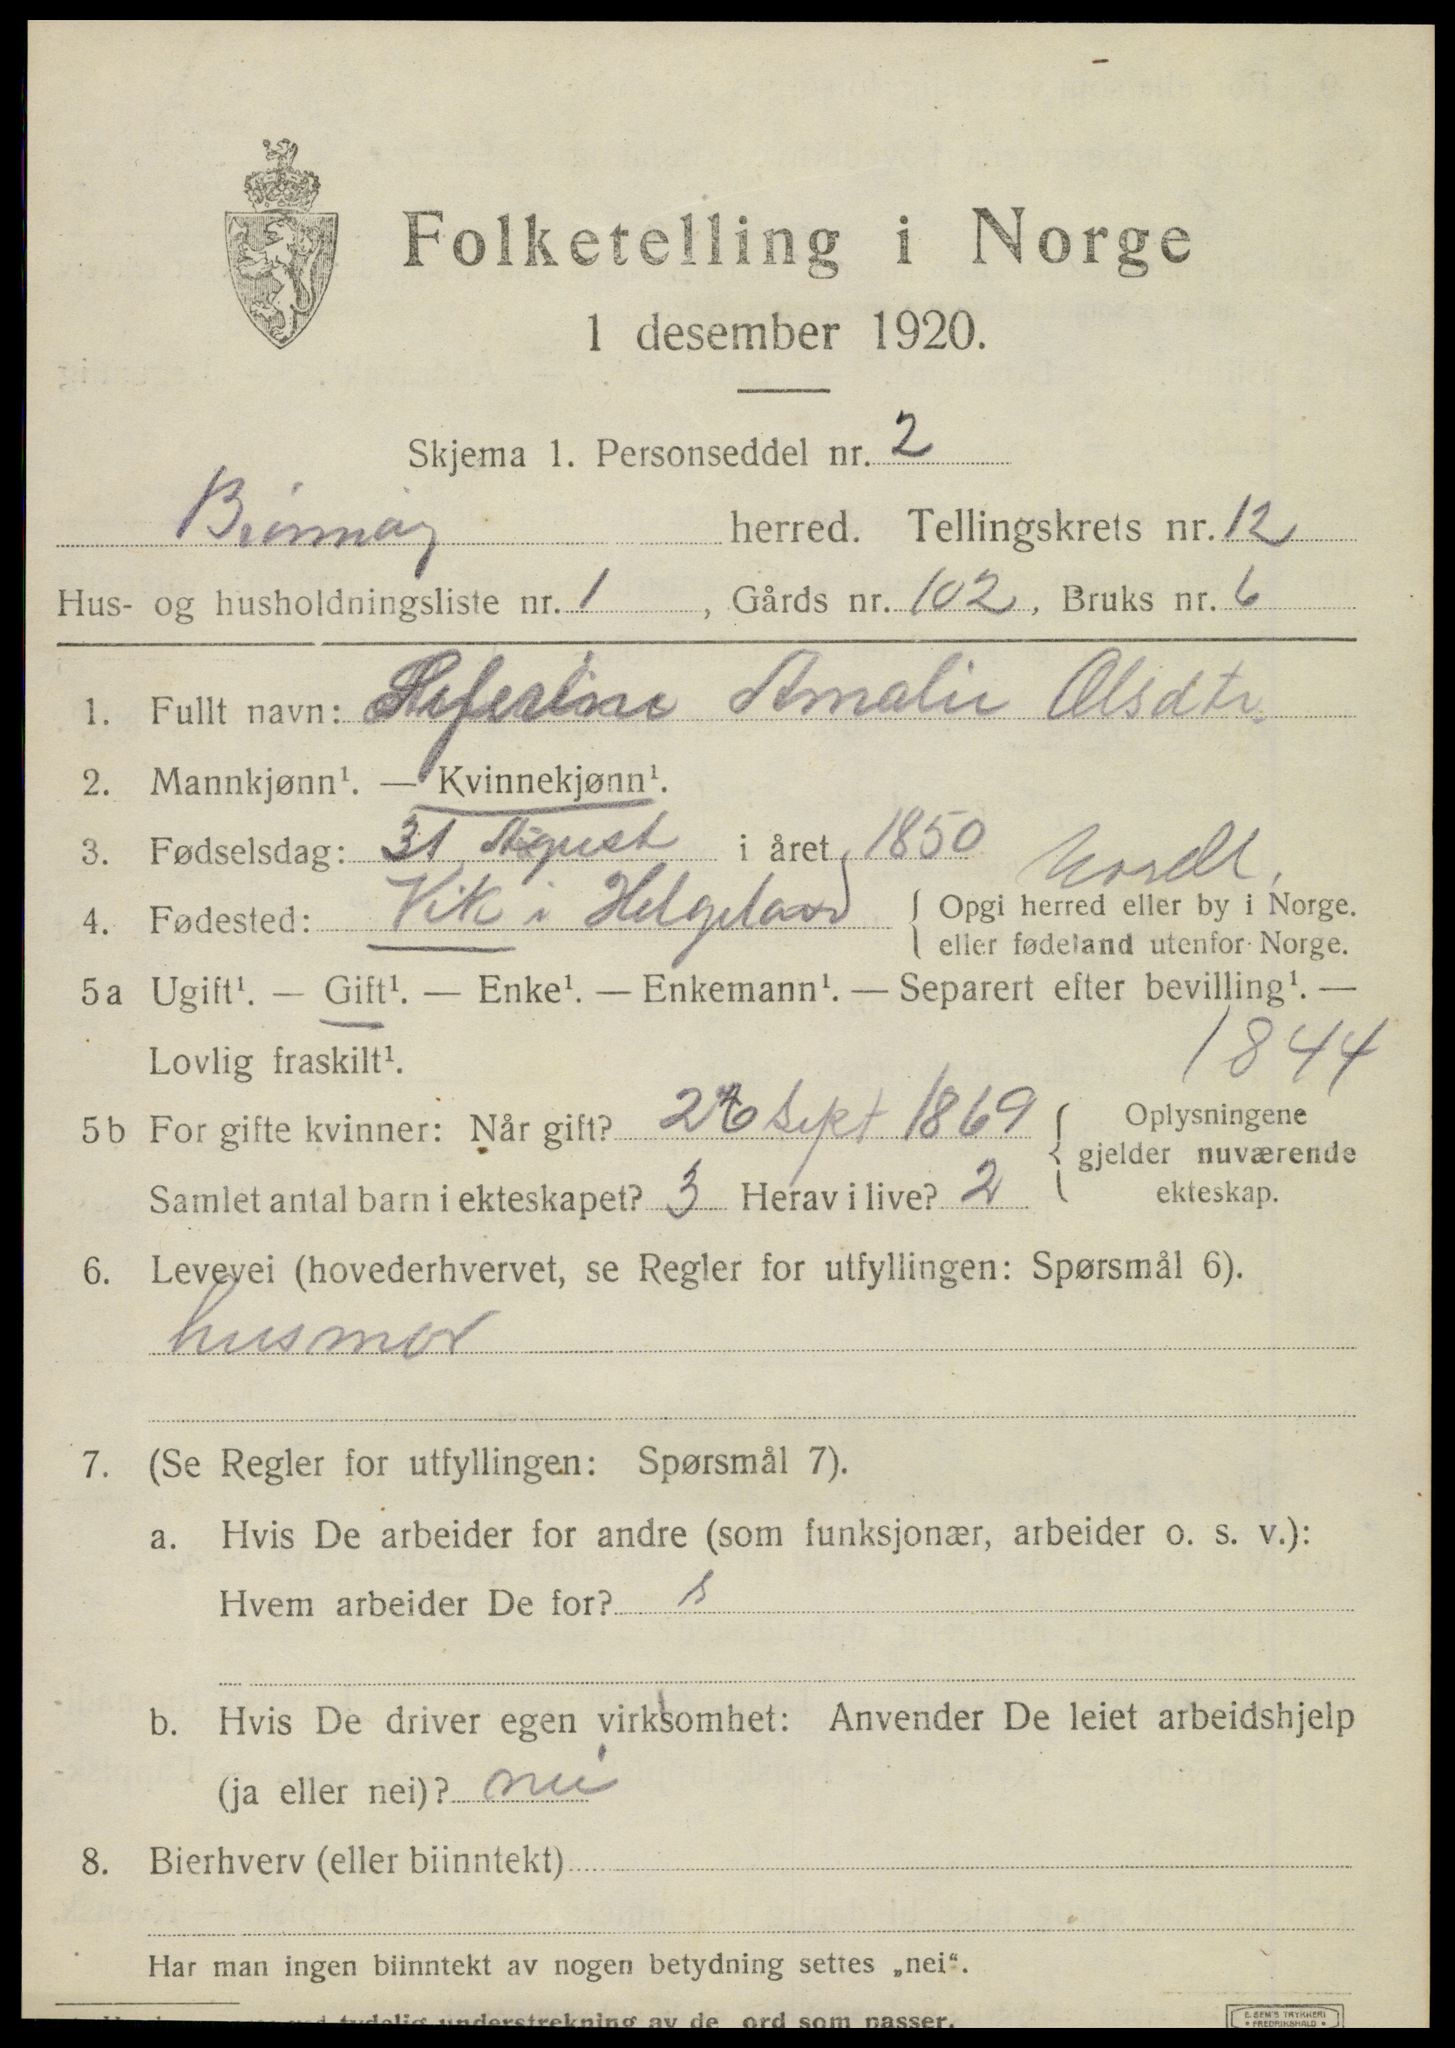 Folketelling i Norge
1 desember 1920.
Skjema 1. Personseddel nr. 2
Brønnøy herred. Tellingskrets nr. 12
Hus- og husholdningsliste nr. 1, Gårds nr. 102, Bruks nr. 6
1. Fullt navn: Seferine Amalie Olsdtr.
2. Mannkjønn¹. — Kvinnekjønn¹.
3. Fødselsdag: 31 August i året 1850
4. Fødested: Vik i Helgeland { Opgi herred eller by i Norge.
eller fødeland utenfor Norge.
5a Ugift¹. — Gift¹. — Enke¹. — Enkemann¹. — Separert efter bevilling¹. —
Lovlig fraskilt¹.
1844
5b For gifte kvinner: Når gift? 26 Sept 1869 { Oplysningene
gjelder nuværende
ekteskap.
Samlet antal barn i ekteskapet? 3 Herav i live? 2
6. Levevei (hovederhvervet, se Regler for utfyllingen: Spørsmål 6).
husmor
7. (Se Regler for utfyllingen: Spørsmål 7).
a. Hvis De arbeider for andre (som funksjonær, arbeider o. s. v.):
Hvem arbeider De for? s
b. Hvis De driver egen virksomhet: Anvender De leiet arbeidshjelp
(ja eller nei)? nei
8. Bierhverv (eller biinntekt)
Har man ingen biinntekt av nogen betydning settes „nei“.
tydelig understrekning av de ord som passer.
E. SEM'S TRYKKERI
• FREDRIKSHALD •